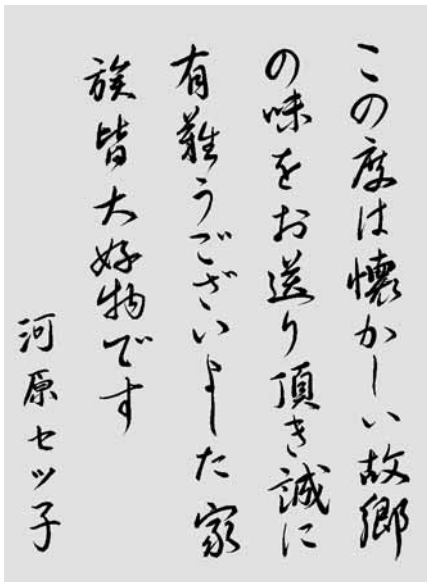 この度は懐かしい故郷
の味をお送り頂き誠に
有難うございました家
族皆大好物です
河原セツ子